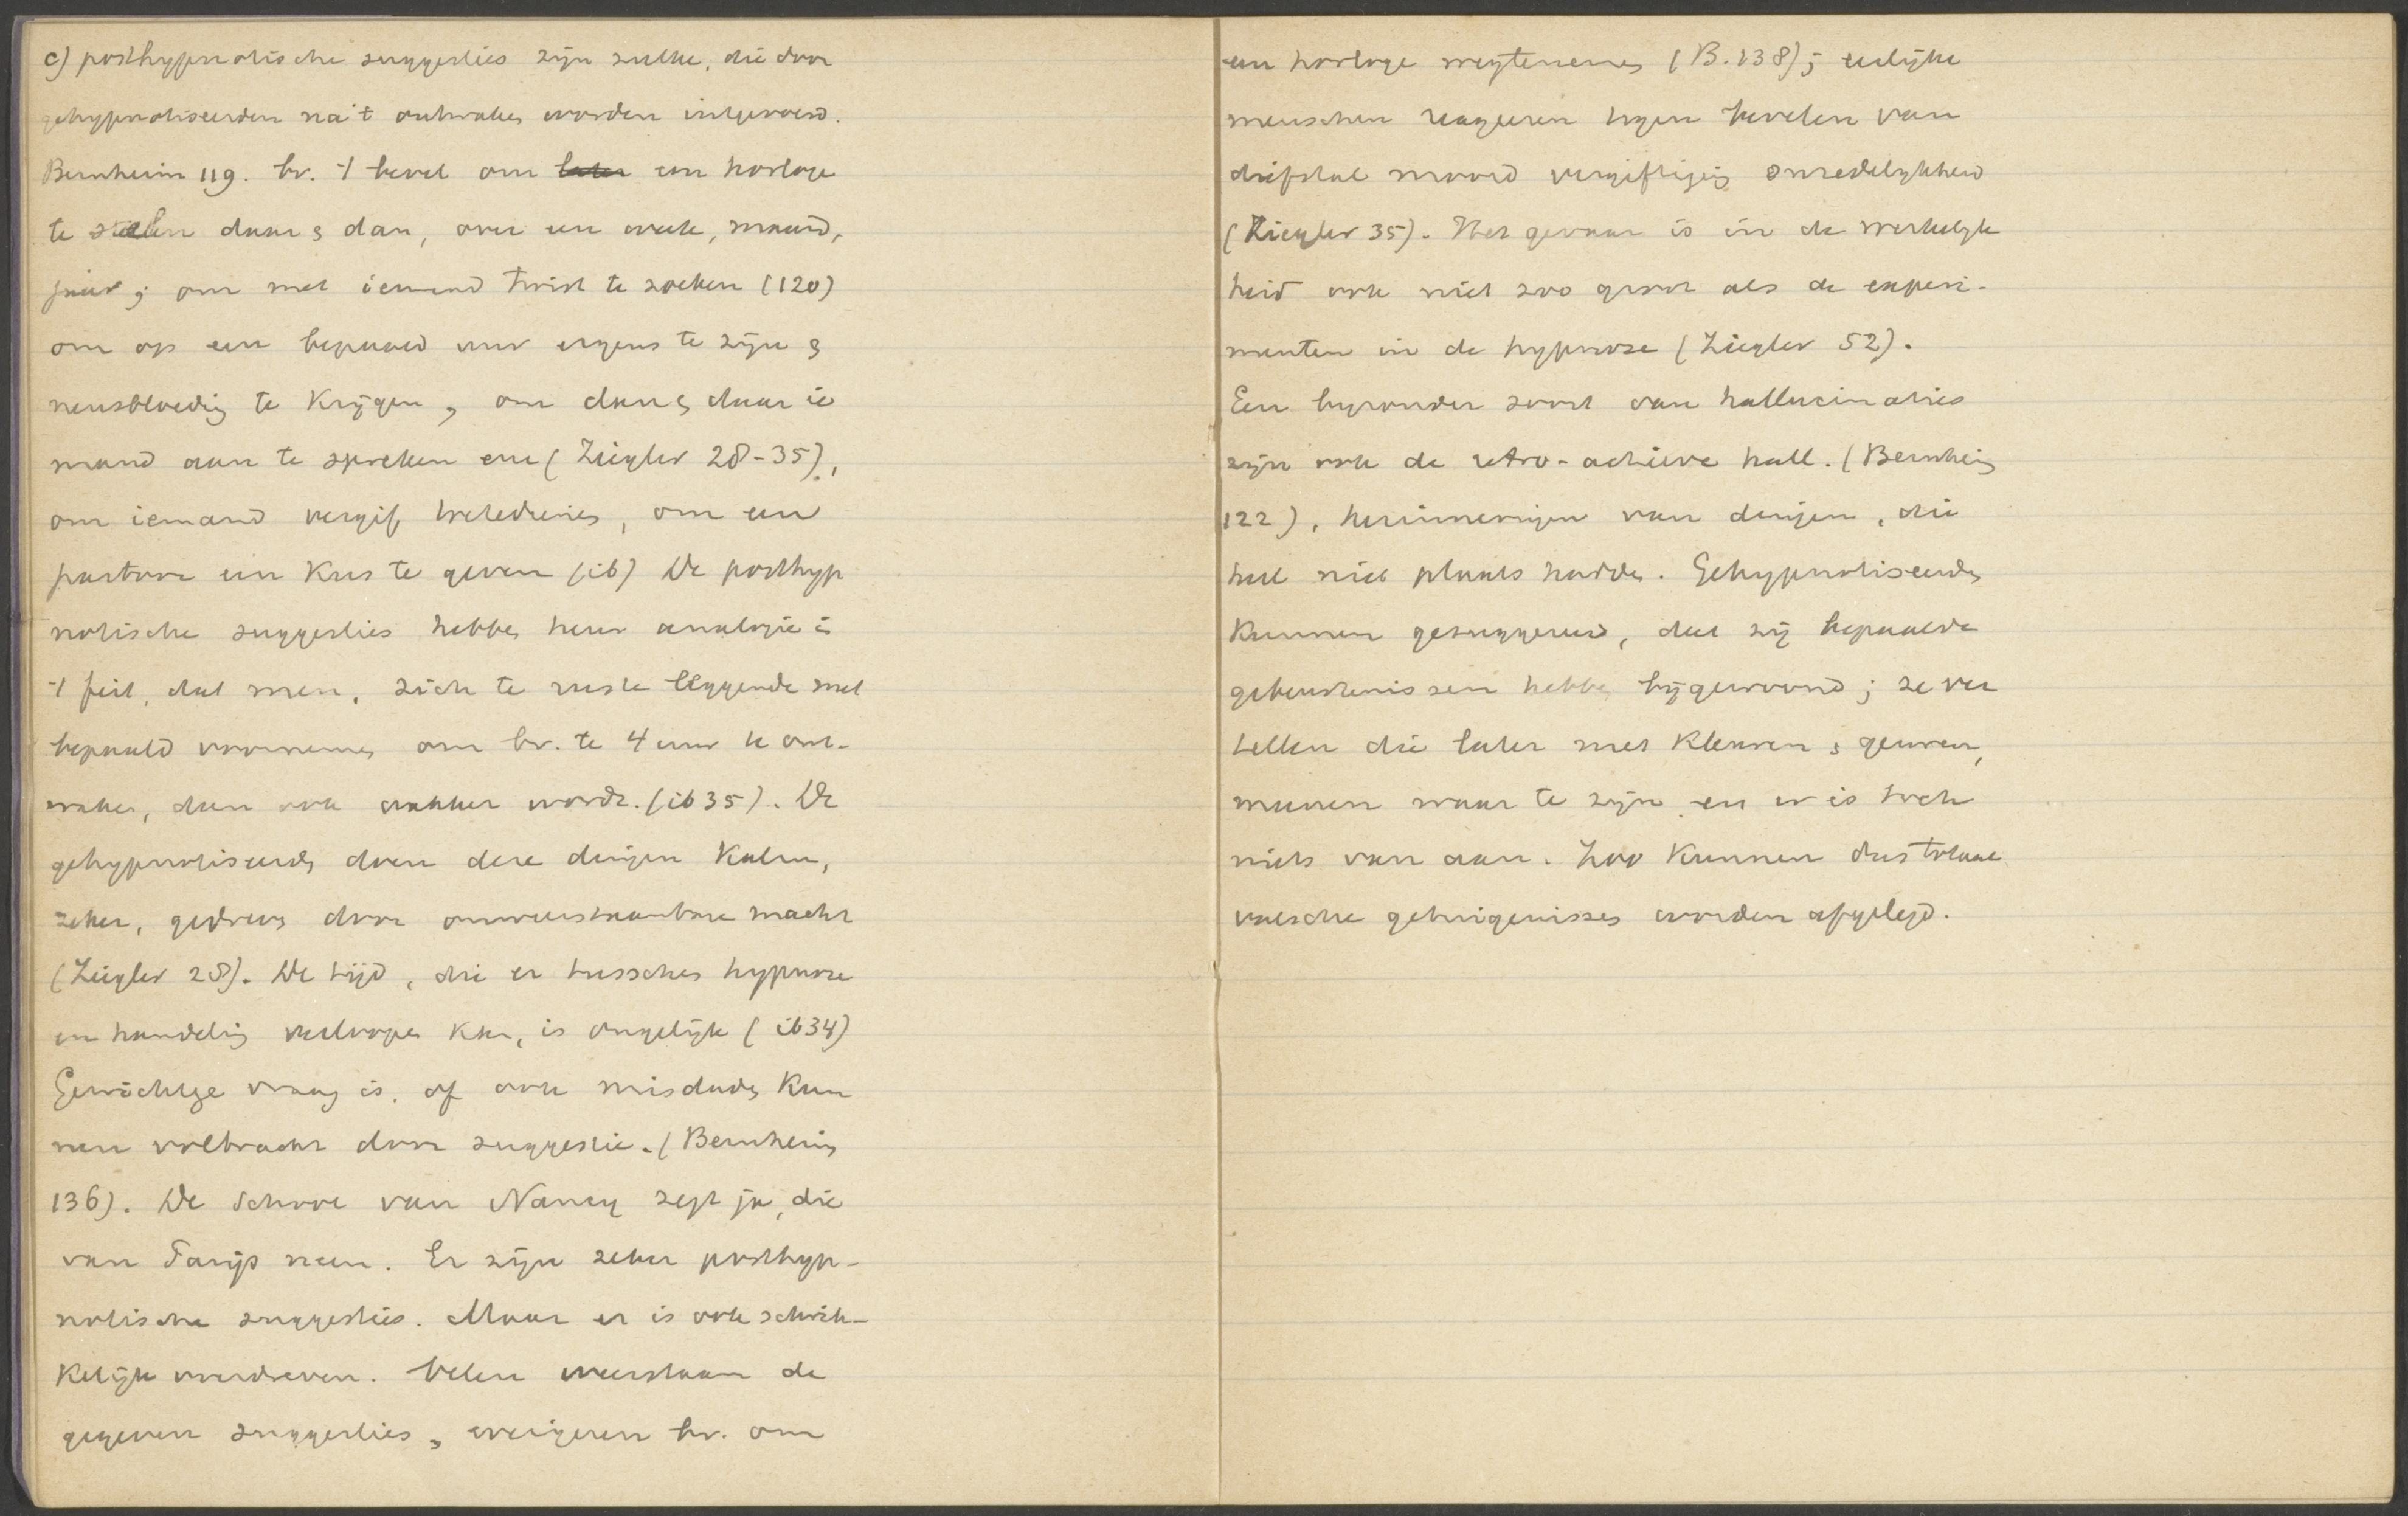 c) posthypnotische suggesties zijn zulke, die door
gehypnotiseerden na 't ontwaken worden uitgevoerd.
Bernheim 119. bv. 't bevel om later een horloge
te stelen daar & dan, over een week, maand,
jaar; om met iemand twist te zoeken (120)
om op een bepaald uur ergens te zijn &
neusbloeding te krijgen, om dan & daar ie
mand aan te spreken enz (Ziegler 28-35),
om iemand vergif toetedienen, om een
pastoor een kus te geven (ib) De posthyp
notische suggesties hebben heur analogie in
't feit, dat men, zich te ruste leggende met
bepaald voornemen om bv. te 4 uur te ont-
waken, dan ook wakker wordt. (ib 35). De
gehypnotiseerden doen deze dingen kalm,
zeker, gedreven door onweerstaanbare macht
(Ziegler 28). De tijd, die er tusschen hypnose
en handeling verloopen kan, is ongelijk (ib 34)
Gewichtige vraag is, of ook misdaden kun
nen volbracht door suggestie. (Bernheim
136). De School van Nancy zegt ja, die
van Parijs neen. Er zijn zeker posthyp-
notische suggesties. Maar er is ook schrik-
kelijk overdreven. Velen weerstaan de
gegeven suggesties, weigeren bv. om
een horloge wegtenemen (B. 138); eerlijke
menschen reageeren tegen bevelen van
diefstal moord vergiftiging onzedelijkheid
(Ziegler 35). Het gevaar is in de werkelijk
heid ook niet zoo groot als de experi-
menten in de hypnose (Ziegler 52).
Een byzonder soort van hallucinaties
zijn ook de retro-actieve hall. (Bernheim
122), herinneringen van dingen, die
heel niet plaats hadden. Gehypnotiseerden
kunnen gesuggereerd, dat zij bepaalde
gebeurtenissen hebben bijgewoond; ze ver
tellen die later met kleuren & geuren,
meenen waar te zijn en er is toch
niets van aan. Zoo kunnen dus totaal
valsche getuigenissen worden afgelegd.